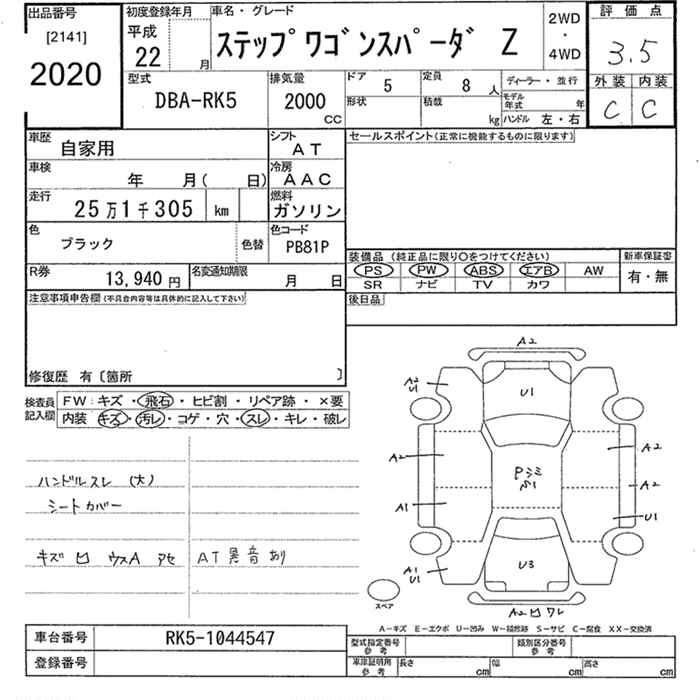 出品番号
[2141]
2020
初度登録年月
平成
22 月
車名・グレード
ステップワゴンスパーダ Z
2WD
・
4WD
評価点
3.5
外装 内装
C C
型式
DBA-RK5
排気量
2000
CC
ドア 5
形状
定員 8 人
積載 kg
ディーラー・並行
モデル年式 年
ハンドル 左・右
車歴
自家用
シフト
AT
車検
年 月( 日)
冷房
AAC
走行
25万1千305 km
燃料
ガソリン
色
ブラック
色替
色コード
PB81P
R券
13,940 円
名変通知期限
月 日
セールスポイント(正常に機能するものに限ります)
装備品 (純正品に限り○をつけてください)
PS PW ABS エアB AW
SR ナビ TV カワ
新車保証書
有・無
後日品
注意事項申告欄(不具合内容等は具体的に記入して下さい)
修復歴 有〔箇所 〕
検査員記入欄
FW: キズ・飛石・ヒビ割・リペア跡・×要
内装 キズ・汚レ・コゲ・穴・スレ・キレ・破レ
ハンドルスレ (大)
シートカバー
キズ 凹 ウスA アセ
AT異音あり
A2
A2
U1
U1
A2
A2
Pシミ
A2
A1
U1
A1
U1
U3
スペア
A2 凹 ワレ
A-キズ E-エクボ U-凹み W-補修跡 S-サビ C-腐食 XX-交換済
車台番号
RK5-1044547
登録番号
型式指定番号
参考
類別区分番号
参考
車庫証明用
参考
長さ cm
幅 cm
高さ cm